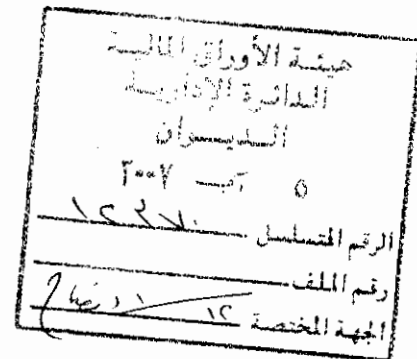 هيئة الأوراق المالية
الدائرة الإدارية
الديوان
٥ آب ٢٠٠٧
الرقم المتسلسل
رقم الملف
الجهة المختصة ١٢